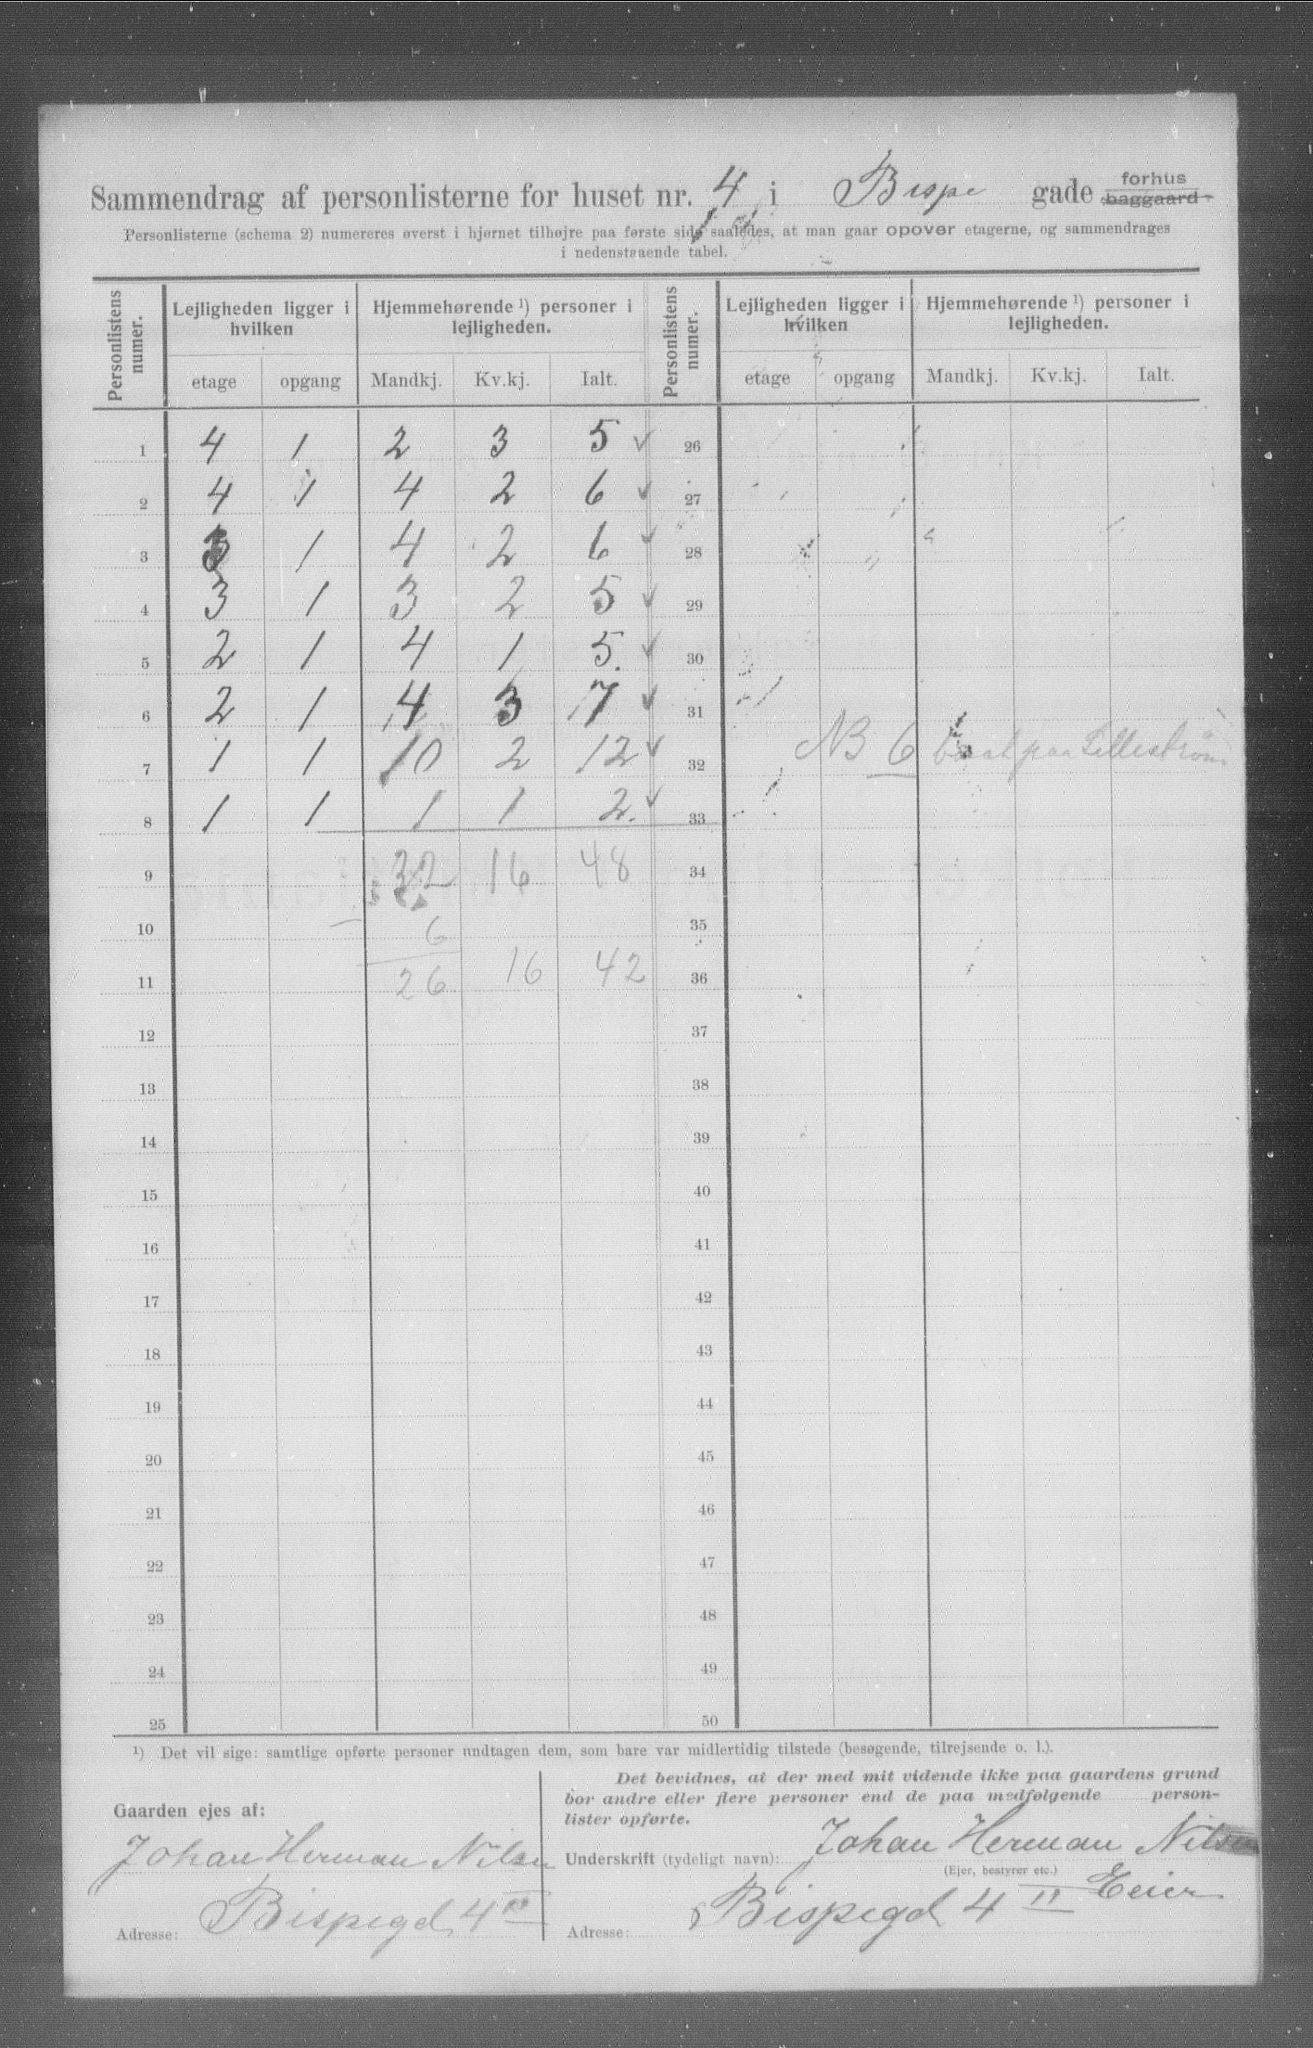 Sammendrag af personlisterne for huset nr. 4 i Bispe gade forhus baggaard
Personlisterne (schema 2) numereres øverst i hjørnet tilhøjre paa første side saaledes, at man gaar opover etagerne, og sammendrages
i nedenstaaende tabel.
Personlistens numer. Lejligheden ligger i hvilken Hjemmehørende ¹) personer i lejligheden. Personlistens numer. Lejligheden ligger i hvilken Hjemmehørende ¹) personer i lejligheden.
etage opgang Mandkj. Kv.kj. Ialt. etage opgang Mandkj. Kv.kj. Ialt.
1 4 1 2 3 5 ✓ 26
2 4 1 4 2 6 ✓ 27
3 3 1 4 2 6 ✓ 28
4 3 1 3 2 5 ✓ 29
5 2 1 4 1 5. ✓ 30
6 2 1 4 3 7 ✓ 31
7 1 1 10 2 12 ✓ 32 NB 6 paa Lillestrøm
8 1 1 1 1 2. ✓ 33
9 32 16 48 34
10 — 6 35
11 26 16 42 36
12 37
13 38
14 39
15 40
16 41
17 42
18 43
19 44
20 45
21 46
22 47
23 48
24 49
25 50
¹) Det vil sige: samtlige opførte personer undtagen dem, som bare var midlertidig tilstede (besøgende, tilrejsende o. l.).
Gaarden ejes af:
Johan Herman Nilsen
Adresse: Bispegd 4 II
Det bevidnes, at der med mit vidende ikke paa gaardens grund
bor andre eller flere personer end de paa medfølgende person-
lister opførte.
Underskrift (tydeligt navn): Johan Herman Nilsen
(Ejer, bestyrer etc.) Eier
Adresse: Bispegd 4 II